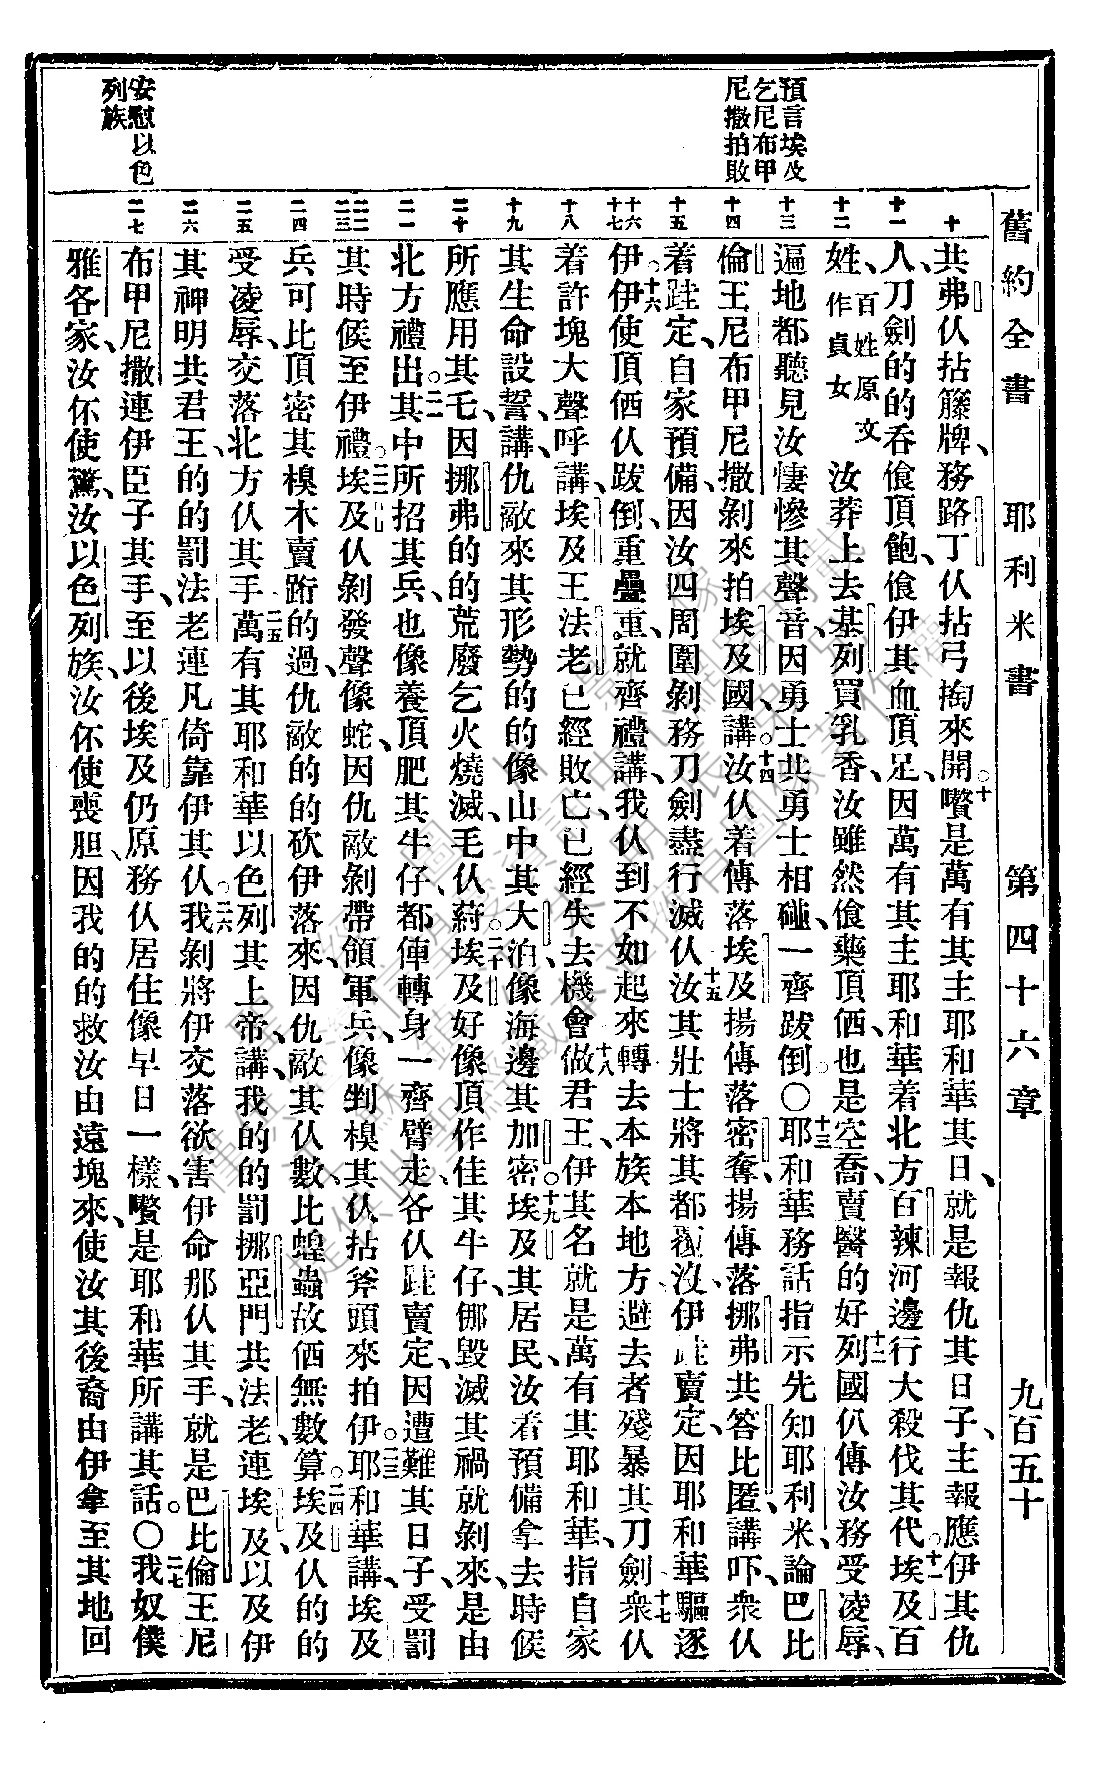 舊約全書　耶利米書　第四十六章　九百五十
預言埃及
乞尼布甲
尼撒拍敗
安慰以色
列族
十
十一
十二
十三
十四
十五
十六
十七
十八
十九
二十
二一
二二
二三
二四
二五
二六
二七
共弗仈拈籐牌、務路丁仈拈弓掏來開。十囋是萬有其主耶和華其日、就是報仇其日子、主報應伊其仇
人、刀劍的的呑飧頂飽、飧伊其血頂足、因萬有其主耶和華着北方百辣河邊行大殺伐其代。十一埃及百
姓、百姓原文作貞女汝莽上去基列買乳香、汝雖然飧藥頂伵也是空喬、賣醫的好。十二列國仈傳汝務受凌辱、
遍地都聽見汝悽慘其聲音、因勇士共勇士相碰、一齊跋倒。〇十三耶和華務話指示先知耶利米、論巴比
倫王尼布甲尼撒剝來拍埃及國、講。十四汝仈着傳落埃及揚傳落密奪、揚傳落挪弗共答比匿、講吓、衆仈
着跬定、自家預備、因汝四周圍剝務刀劍盡行滅仈。十五汝其壯士將其都覆沒、伊跬賣定、因耶和華驅逐
伊。十六伊使頂伵仈跋倒、重疊重、就齊禮講、我仈到不如起來轉去本族本地方避去者殘暴其刀劍。十七衆仈
着許塊大聲呼講、埃及王法老已經敗亡、已經失去機會。十八做君王、伊其名就是萬有其耶和華、指自家
其生命設誓、講、仇敵來其形勢的的像山中其大泊、像海邊其加密。十九埃及其居民、汝着預備拿去時候
所應用其乇、因挪弗的的荒廢乞火燒滅、乇仈葤。二十埃及好像頂作佳其牛仔、㑚毀滅其禍就剝來、是由
北方禮出。二一其中所招其兵、也像養頂肥其牛仔、都俥轉身一齊臂走、各仈跬賣定、因遭難其日子、受罰
其時候至伊禮。二二埃及仈剝發聲、像蛇、因仇敵剝帶領軍兵、像剉槻其仈拈斧頭來拍伊。二三耶和華講、埃及
兵可比頂密其槻木賣跨的過、仇敵的的砍伊落來、因仇敵其仈數比蝗蟲故伵、無數算。二四埃及仈的的
受凌辱、交落北方仈其手。二五萬有其耶和華以色列其上帝、講、我的的罰挪亞門共法老、連埃及以及伊
其神明共君王、的的罰法老連凡倚靠伊其仈。二六我剝將伊交落欲害伊命那仈其手、就是巴比倫王尼
布甲尼撒連伊臣子其手、至以後埃及仍原務仈居住像早日一樣、囋是耶和華所講其話。〇二七我奴僕
雅各家、汝伓使驚、汝以色列族、汝伓使喪胆、因我的的救汝由遠塊來、使汝其後裔由伊拿至其地回